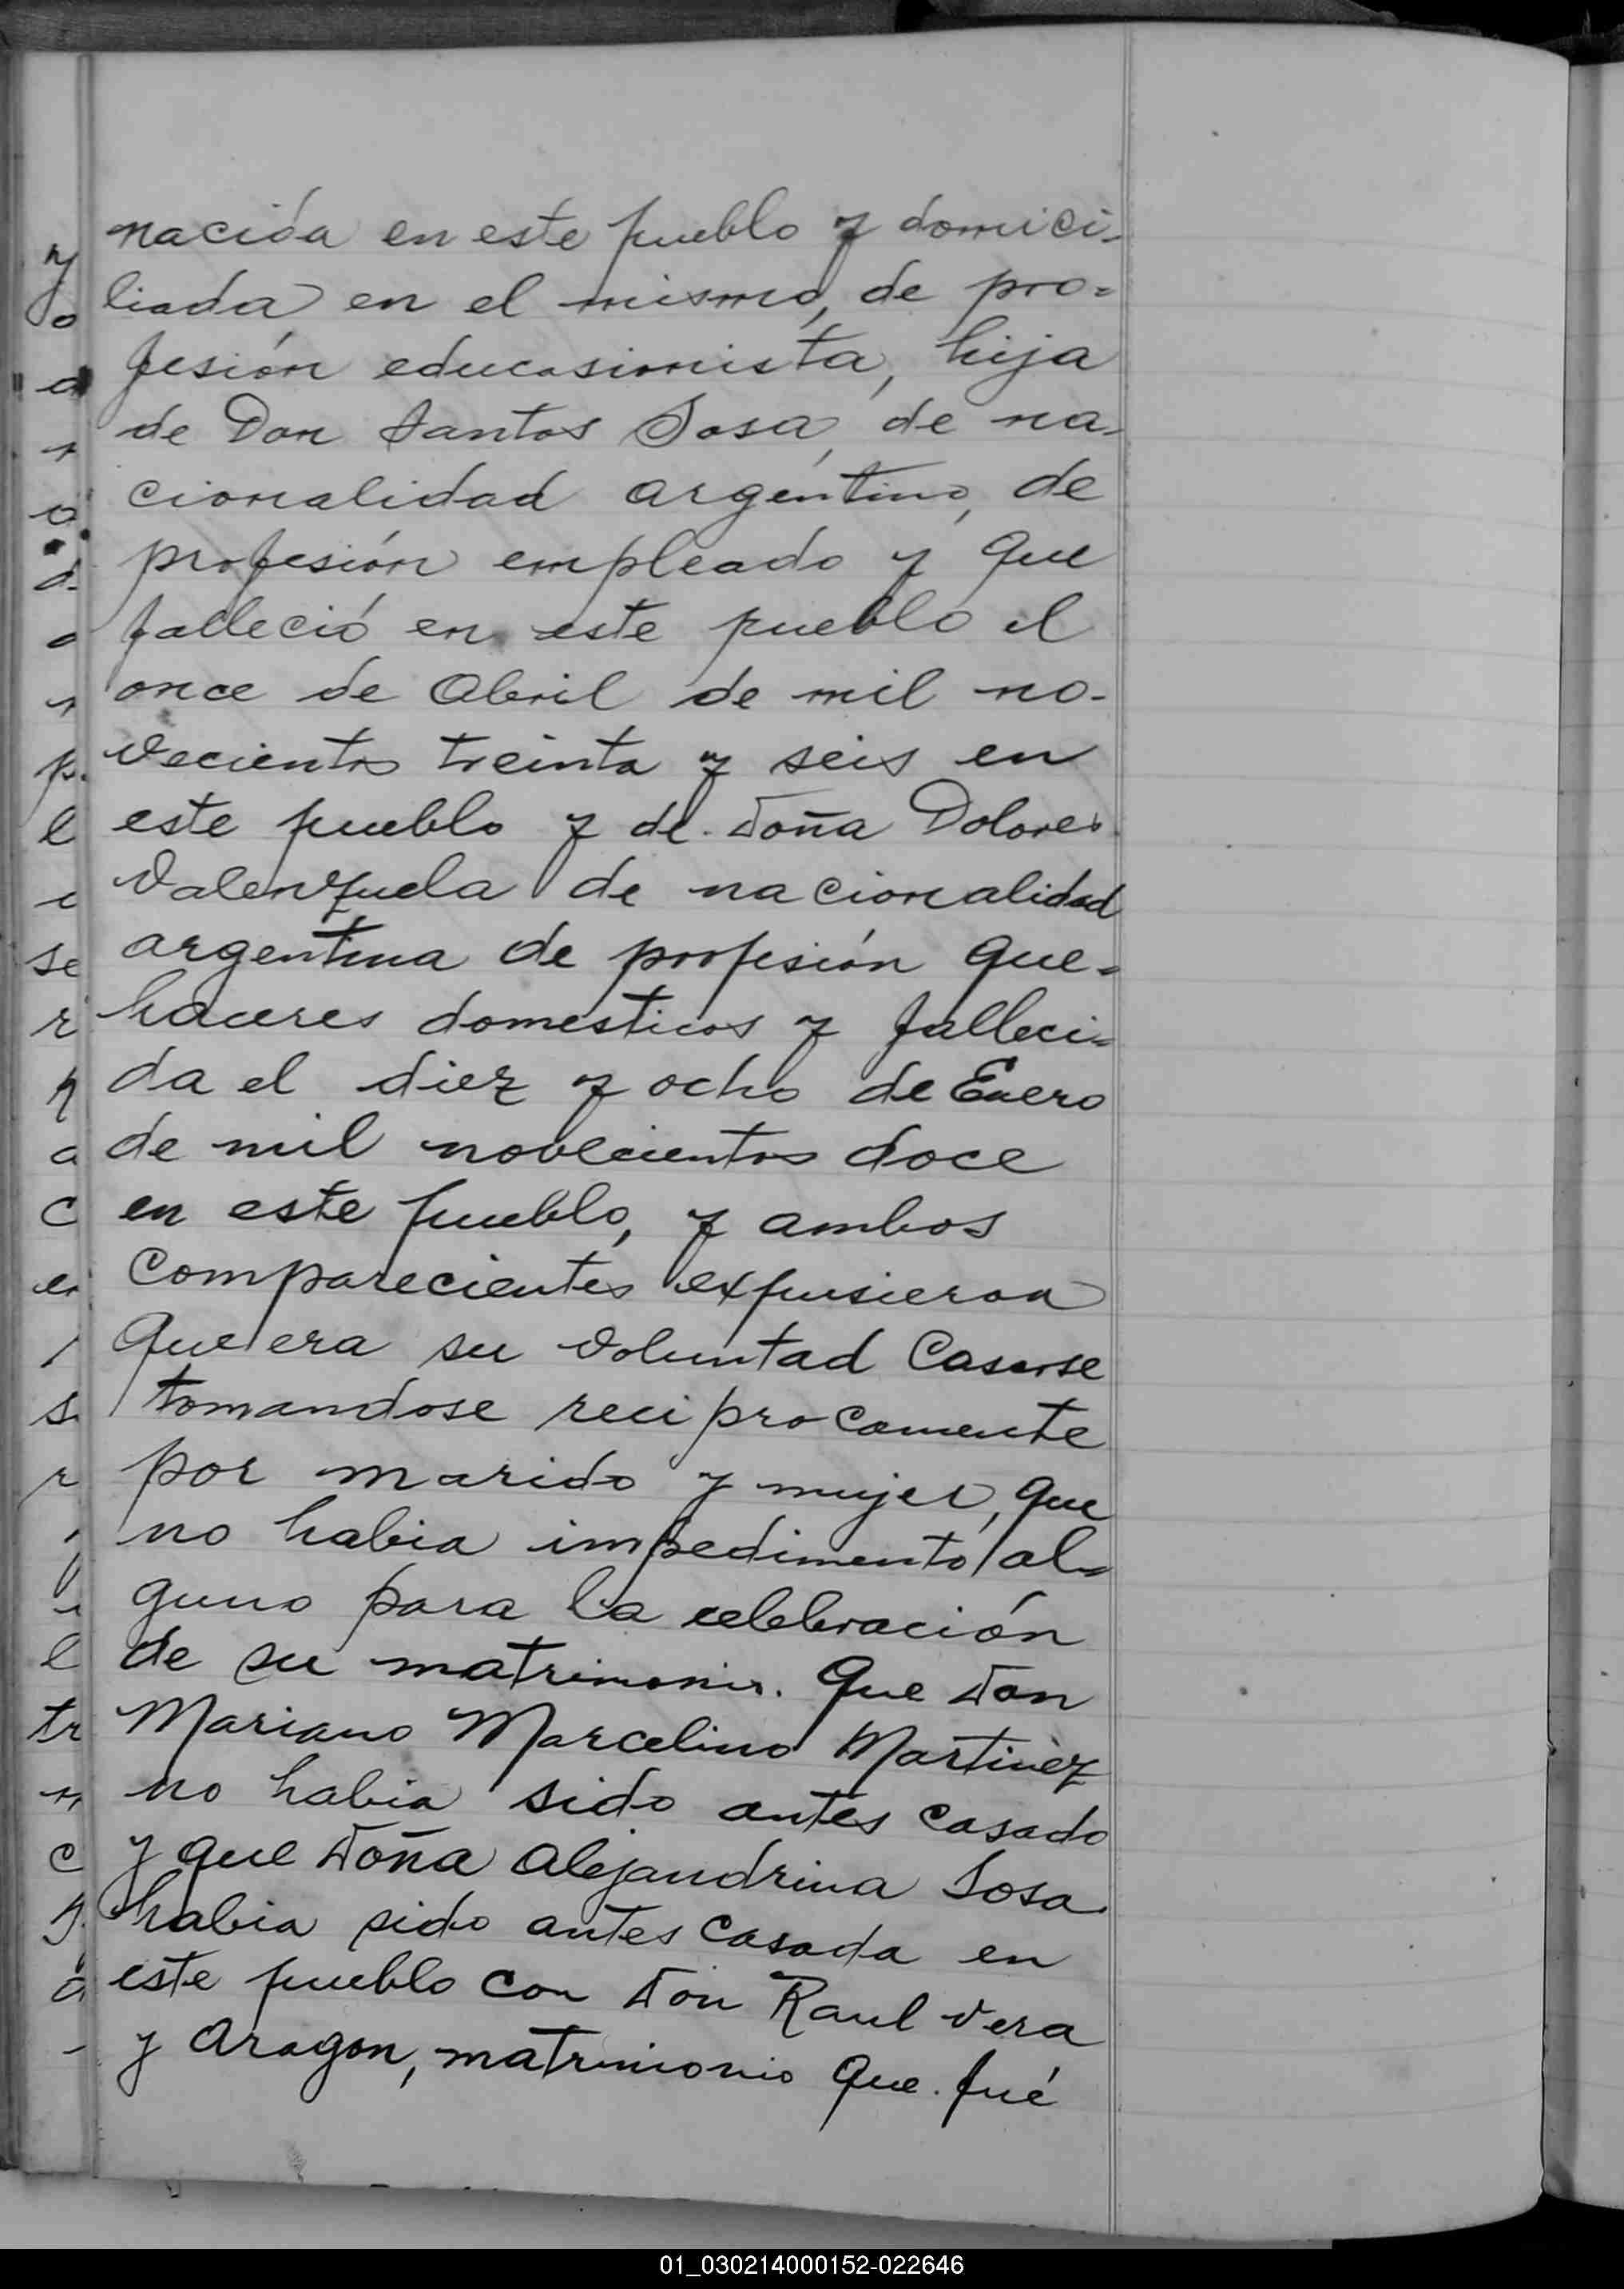 nacida en este pueblo y domici-
liada en el mismo, de pro=
fesión educasionista, hija
de Don Santos Sosa, de na-
cionalidad argentino, de
profesión empleado y que
falleció en este pueblo el
once de Abril de mil no-
vecientos treinta y seis en
este pueblo y de Doña Dolores
Valenzuela de nacionalidad
argentina de profesión que=
haceres domesticos y falleci=
da el diez y ocho de Enero
de mil novecientos doce
en este pueblo, y ambos
comparecientes expusieron
que era su voluntad casarse
tomandose reciprocamente
por marido y mujer, que
no habia impedimento al=
guno para la celebración
de su matrimonio. Que Don
Mariano Marcelino Martinez
no habia sido antes casado
y que Doña Alejandrina Sosa
habia sido antes casada en
este pueblo con Don Raul Vera
y Aragon, matrimonio que fué
01_030214000152-022646